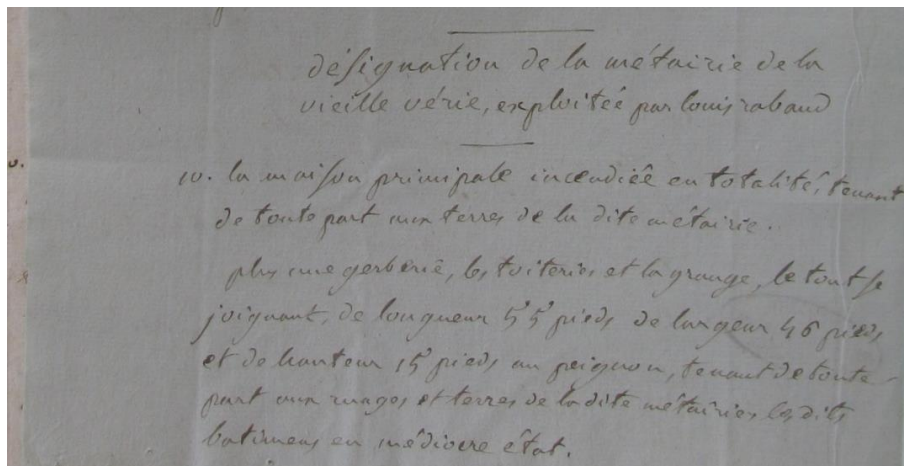 désignation de la métairie de la
vieille vérie, exploitée par louis rabaud
10. la maison principale incendiée en totalité, tenant
de toute part aux terres de la dite métairie.
plus une gerberie, les toiteries et la grange, le tout se
joignant, de longueur 55 pieds de largeur 46 pieds
et de hauteur 15 pieds au peignon, tenant de toute
part aux ruages et terres de la dite métairie, les dits
batimens en médiocre état.